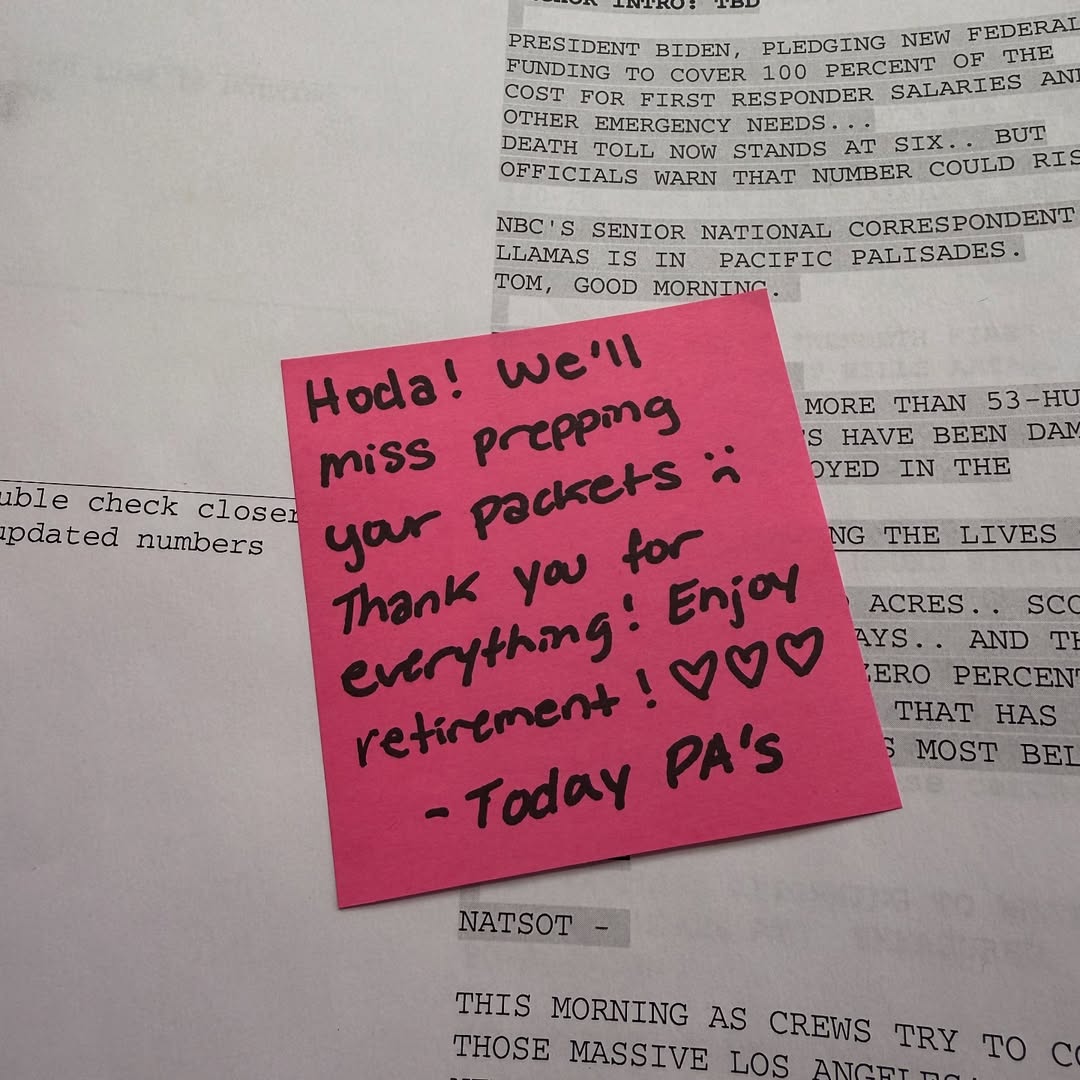 INTRO: TBD
PRESIDENT BIDEN, PLEDGING NEW FEDERAL
FUNDING TO COVER 100 PERCENT OF THE
COST FOR FIRST RESPONDER SALARIES AND
OTHER EMERGENCY NEEDS...
DEATH TOLL NOW STANDS AT SIX.. BUT
OFFICIALS WARN THAT NUMBER COULD RIS
NBC'S SENIOR NATIONAL CORRESPONDENT
LLAMAS IS IN PACIFIC PALISADES.
TOM, GOOD MORNING.
Hoda! We'll
miss prepping
your packets :(
Thank you for
everything! Enjoy
retirement! ♡♡♡
- Today PA's
MORE THAN 53-HU
S HAVE BEEN DAM
OYED IN THE
uble check closer
updated numbers
NG THE LIVES
ACRES.. SCO
AYS.. AND TH
ZERO PERCENT
THAT HAS
S MOST BEL
NATSOT -
THIS MORNING AS CREWS TRY TO CO
THOSE MASSIVE LOS ANGELES